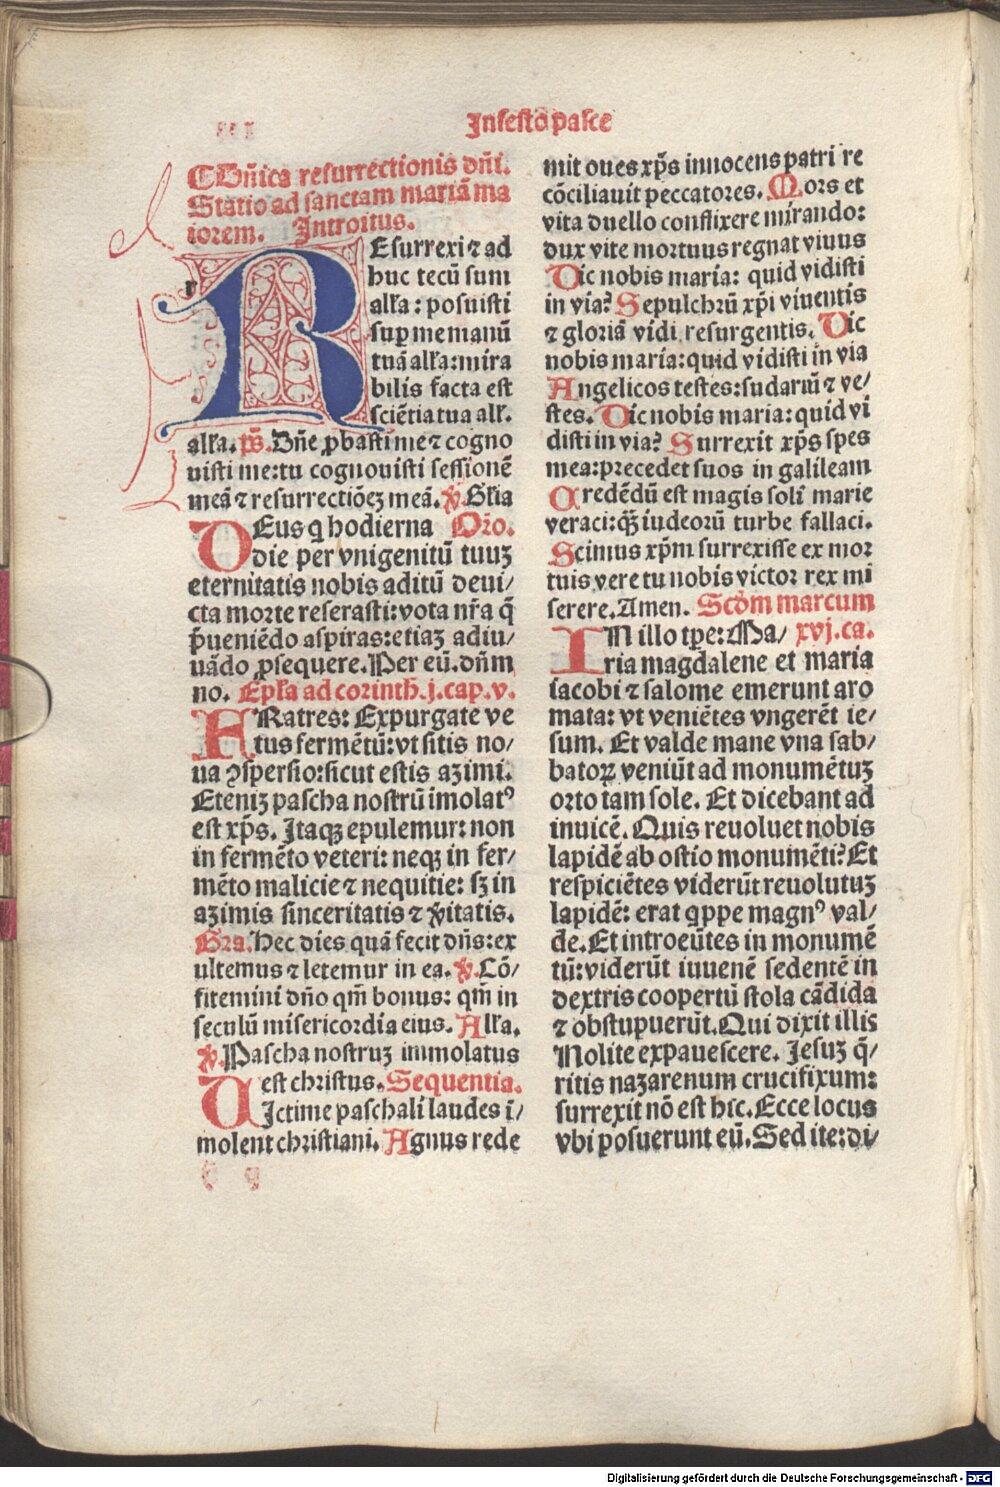 In festo pasce
Dñica resurrectionis dñi.
Statio ad sanctam mariā ma
iorem. Introitus.
REsurrexi ⁊ ad
huc tecū sum
alľa: posuisti
sup me manū
tuā alľa: mira
bilis facta est
sciētia tua alľ.
alľa. ps̄. Dñe ꝓbasti me ⁊ cogno
uisti me: tu cognouisti sessionē
meā ⁊ resurrectiōeꝫ meā. ℣. Gľia
DEus q̇ hodierna Oŕo.
die per vnigenitū tuuꝫ
eternitatis nobis aditū deui/
cta morte reserasti: vota nr̄a q̄
p̄ueniēdo aspiras: etiaꝫ adiu/
uādo ꝓsequere. Per eū. dn̄m
no. Epľa ad corinth. j. cap. v.
FRatres: Expurgate ve
tus fermētū: vt sitis no/
ua ꝯspersio: sicut estis azimi.
Eteniꝫ pascha nostrū imolatꝰ
est xp̄s. Itaqꝫ epulemur: non
in fermēto veteri: neqꝫ in fer/
mēto malicie ⁊ nequitie: sꝫ in
azimis sinceritatis ⁊ v̓itatis.
Gra. Hec dies quā fecit dn̄s: ex
ultemus ⁊ letemur in ea. ℣. Cō/
fitemini dn̄o qm̄ bonus: qm̄ in
seculū misericordia eius. Alľa.
℣. Pascha nostruꝫ immolatus
est christus. Sequentia.
UIctime paschali laudes ī/
molent christiani. Agnus rede
mit oues xp̄s innocens patri re
cōciliauit peccatores. Mors et
vita duello conflixere mirando:
dux vite mortuus regnat viuus
Dic nobis maria: quid vidisti
in via? Sepulchrū xp̄i viuentis
⁊ gloriā vidi resurgentis. Dic
nobis maria: quid vidisti in via
Angelicos testes: sudariū ⁊ ve/
stes. Dic nobis maria: quid vi
disti in via? Surrexit xp̄s spes
mea: precedet suos in galileam
Credēdū est magis soli marie
veraci: qꝫ̄ iudeorū turbe fallaci.
Scimus xp̄m surrexisse ex mor
tuis vere tu nobis victor rex mi
serere. Amen. Scd̄m marcum
IN illo tp̄e: Ma/ xvj. ca.
ria magdalene et maria
iacobi ⁊ salome emerunt aro
mata: vt veniētes vngerēt ie/
sum. Et valde mane vna sab/
batoꝝ veniūt ad monumētuꝫ
orto iam sole. Et dicebant ad
inuicē. Quis reuoluet nobis
lapidē ab ostio monumēti? Et
respiciētes viderūt reuolutuꝫ
lapidē: erat q̇ppe magnꝰ val/
de. Et introeūtes in monumē
tū: viderūt iuuenē sedentē in
dextris coopertū stola cādida
⁊ obstupuerūt. Qui dixit illis
Nolite expauescere. Jesuꝫ q̄/
ritis nazarenum crucifixum:
surrexit nō est hic. Ecce locus
vbi posuerunt eū. Sed ite: di/
Digitalisierung gefördert durch die Deutsche Forschungsgemeinschaft - DFG